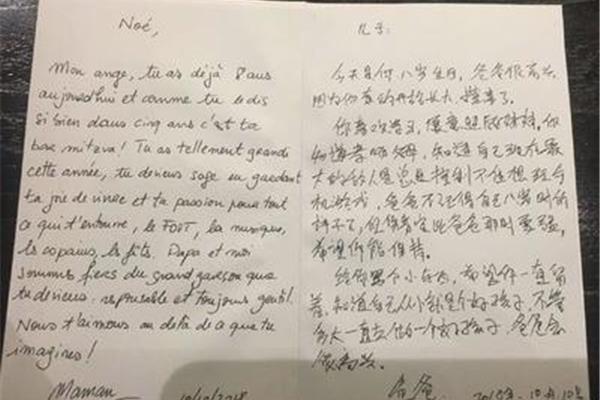 Noé,
Mon ange, tu as déjà 8 ans
aujourd'hui et comme tu le dis
si bien dans cinq ans c'est ta
bar mitzva! Tu as tellement grandi
cette année, tu deviens sage en gardant
ta joie de vivre et ta passion pour tout
ce qui t'entoure, le FOOT, la musique,
les copains, les fêtes. Papa et moi
sommes fiers du grand garçon que
tu deviens, responsable et toujours gentil.
Nous t'aimons au delà de ce que tu
imagines!
Maman 10/10/2018
儿子:
今天是你八岁生日,爸爸很高兴,
因为你真的开始长大,懂事了。
你喜欢学习,愿意照顾妹妹,你
知道自己现在最
大的敌人是总是控制不住想玩手
机游戏,爸爸不记得自己八岁时的
肯定比爸爸那时要强,
希望你能保持。
给你写个小东西,希望你一直留
着,知道自己从小就是个好孩子,不管
多大一直 一个好孩子,爸爸会
很高兴。
爸爸 2018年10月10日